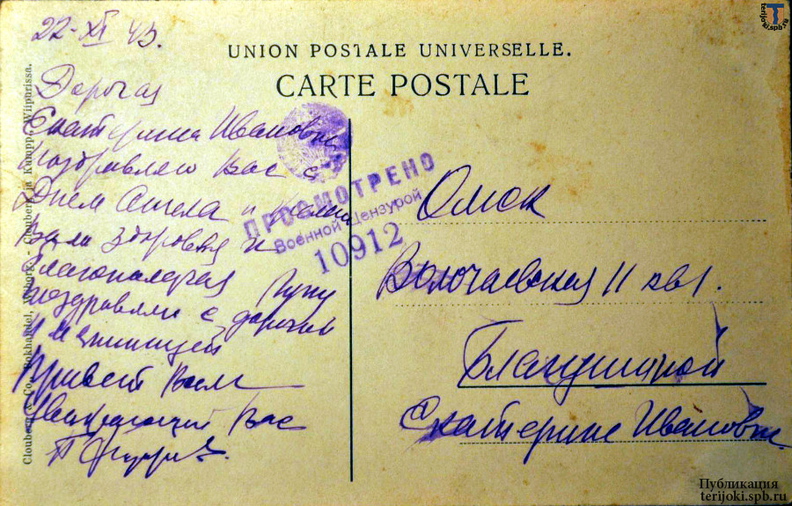 22-XI 43.
UNION POSTALE UNIVERSELLE.
CARTE POSTALE
Дорогая
Екатерина Ивановна
поздравляю Вас с
Днем Ангела и желаю
Вам здоровья и
благополучия
поздравляю с дорогой
имянинницей
Привет Вам
Вас
ПРОСМОТРЕНО
Военной Цензурой
10912
Омск
Волочаевская 11 кв 1.
Екатерине Ивановне
Clouberg & Co, Bokhandel, Viborg. - Clouberg ja Kumpp., Wiipurissa.
terijoki.spb.ru
Публикация
terijoki.spb.ru